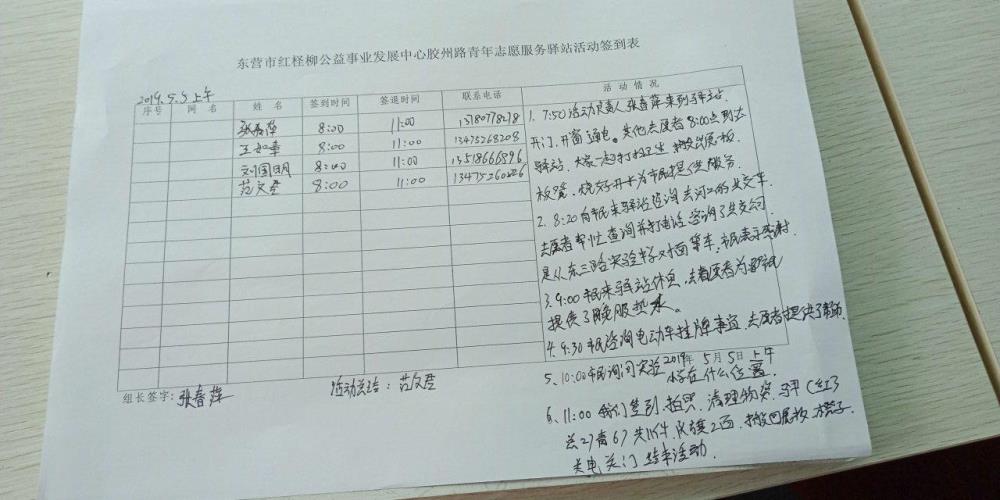 东营市红柽柳公益事业发展中心胶州路青年志愿服务驿站活动签到表
2019.5.5上午
序号 网名 姓名 签到时间 签退时间 联系电话 活动情况
张春萍 8:00 11:00
王如章 8:00 11:00 13475268208
刘国明 8:00 11:00
范文君 8:00 11:00
1. 7:50活动负责人张春萍来到驿站
开门、开窗通电。其他志愿者8:00点到达
驿站，大家一起打扫卫生
板凳，烧好开水为市民提供服务
2. 8:20有市民来驿站咨询去河口的公交车
志愿者帮忙查询并打电话咨询了公交公司
是从东三路实验中学对面等车，市民表示感谢.
3. 9:00市民来驿站休息，志愿者为
提供了热水。
4. 9:30市民咨询电动车挂牌事宜，志愿者提供了帮助
5、10:00市民询问实验
小学在什么位置
2019年5月5日上午
6、11:00我们签到、拍照、清理物资、马甲（红了
兰2）青6）共11件，
关电关门 结束活动.
组长签字：张春萍
活动总结：范文君